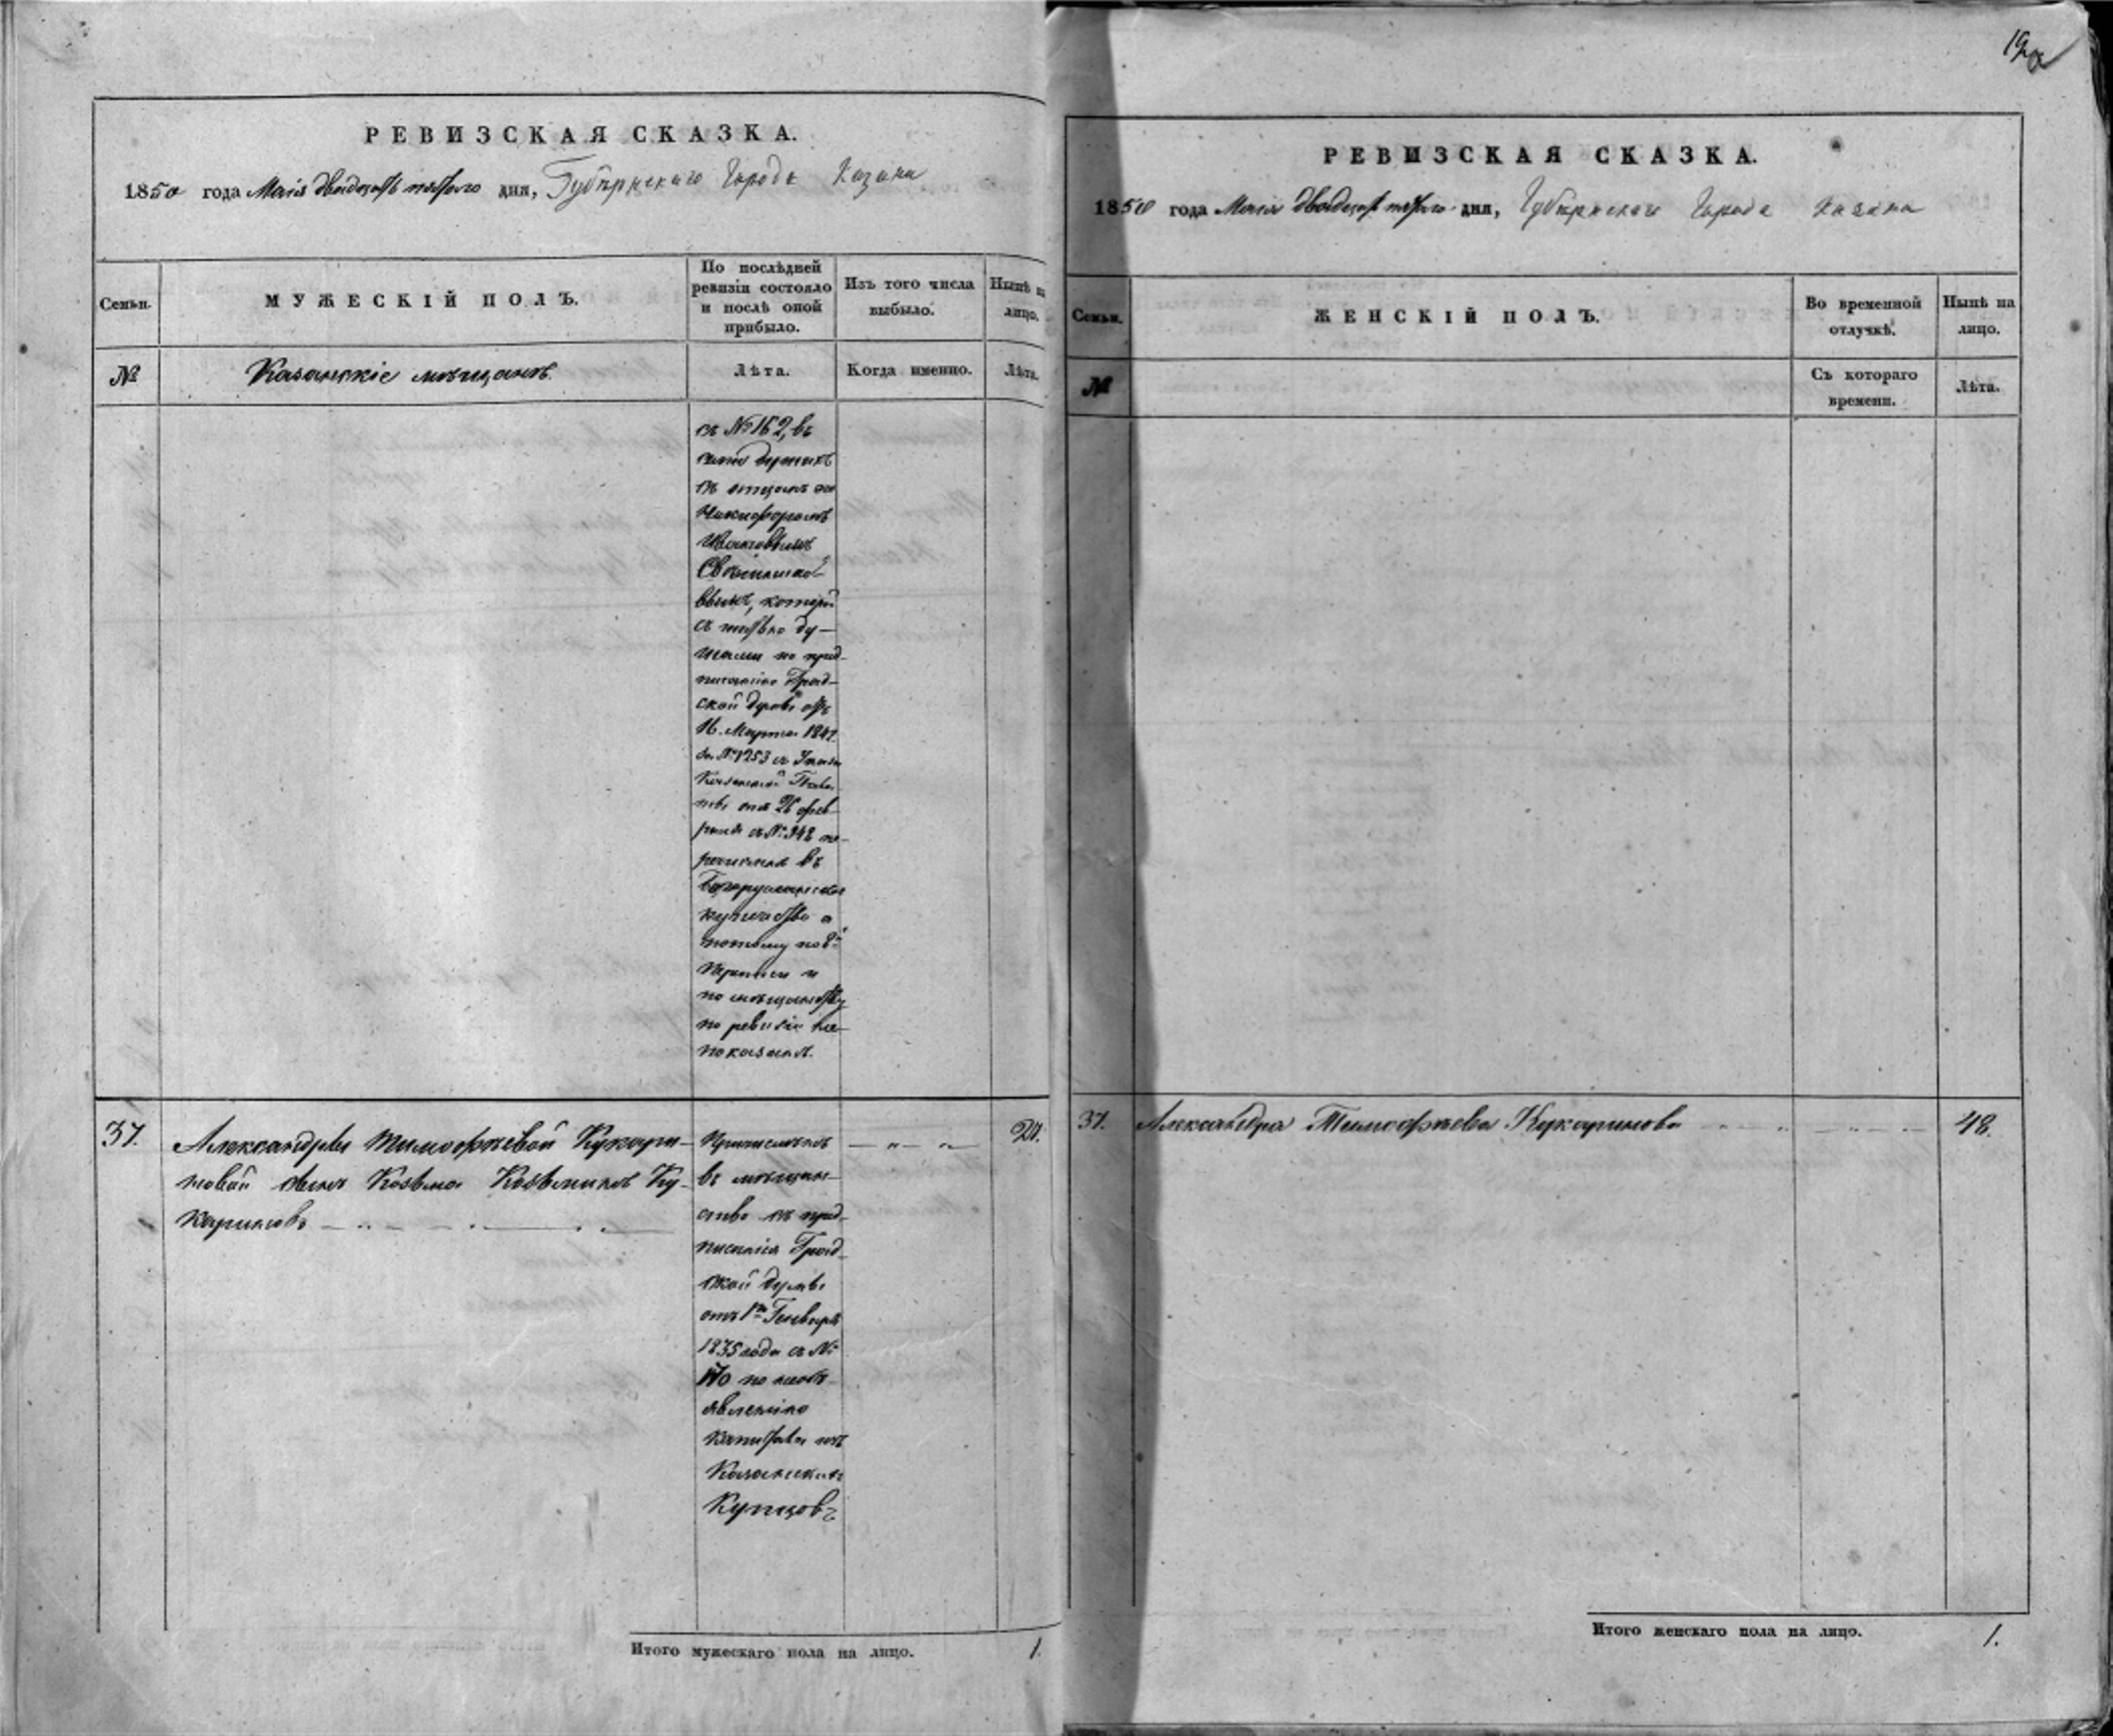 РЕВИЗСКАЯ СКАЗКА.
1850 года Маія двадцать пятаго дня, Губернскаго Города Казани
Семьи.
МУЖЕСКІЙ ПОЛЪ.
По послѣдней ревизіи состояло и послѣ оной прибыло.
Изъ того числа выбыло.
Нынѣ на лицо.
№
Казанскіе мѣщане
Лѣта.
Когда именно.
Лѣта.
съ № 162, въ
съ отцомъ его
Никифоромъ
Ивановымъ
вымъ, который
ду-
шами по пред-
писанію Град-
ской думы отъ
Марта 184
за № 1253 съ Указа
Казенной Пала-
ты отъ 26 фев-
раля за № 348 пе-
речисленъ въ
Бугурусланское
купечество а
потому по 8й
переписи и
по мѣщанству
по ревизіи не
показанъ.
37.
Александры Тимофѣевой Кукари-
новой сынъ Козьма Козьминъ Ку-
кариновъ
Причисленъ
въ мѣщан-
ство съ пред-
писанія Град-
ской думы
отъ 1го Генваря
1835 года за №
170 по необъ-
явленію
капитала изъ
Казанскихъ
Купцовъ
Итого мужескаго пола на лицо.
1.
19
РЕВИЗСКАЯ СКАЗКА.
1850 года Маія двадцать пятаго дня, Губернскаго Города Казани
Семьи.
ЖЕНСКІЙ ПОЛЪ.
Во временной отлучкѣ.
Нынѣ на лицо.
№
Съ котораго времени.
Лѣта.
37.
Александра Тимофѣева Кукаринова
48.
Итого женскаго пола на лицо.
1.